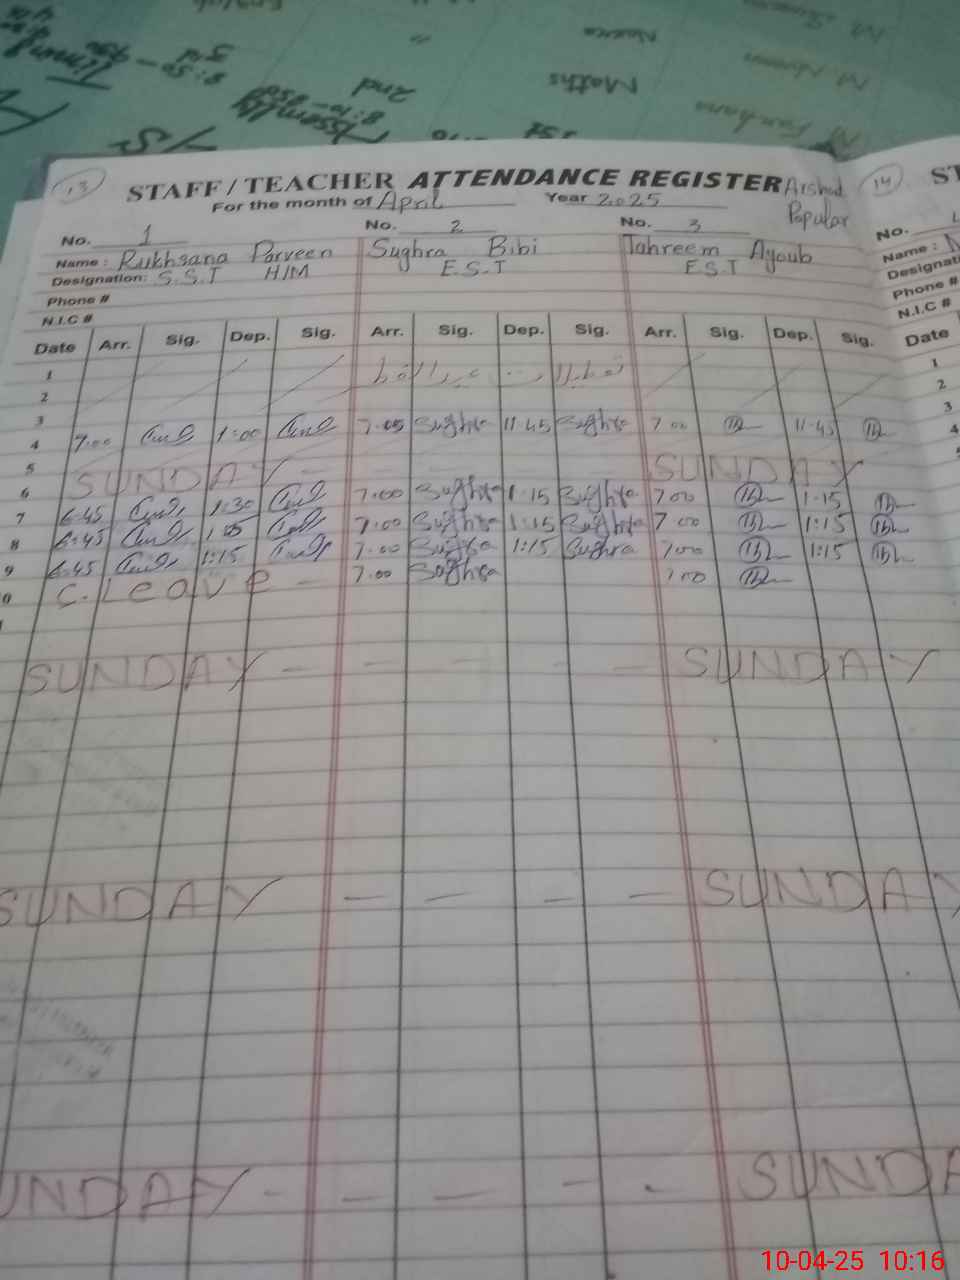 Timing
8:50 - 9:30
3rd
Assembly
8:10 - 8:50
2nd
Maths
1st
13 STAFF/TEACHER ATTENDANCE REGISTER Arshad 14
For the month of April Year 2025 Popular
No. 1 No. 2 No. 3 No.
Name: Rukhsana Parveen Sughra Bibi Tahreem Ayoub Name:
Designation: S.S.T H/M E.S.T E.S.T
Phone # Phone #
N.I.C # N.I.C #
Date Arr. Sig. Dep. Sig. Arr. Sig. Dep. Sig. Arr. Sig. Dep. Sig. Date
1 تعطیلات عیدالفطر 1
2 2
3 3
4 7:00 1:00 7:05 Sughra 11:45 Sughra 7:00 11:45 4
5
6 SUNDAY - - - - SUNDAY
7 6:45 1:30 7:00 Sughra 1:15 Sughra 7:00 1:15
8 6:45 7:00 Sughra 1:15 Sughra 7:00 1:15
9 6:45 1:15 7:00 Sughra 1:15 Sughra 7:00 1:15
0 C. Leave - 7:00 Sughra 7:00
SUNDAY - - - - - SUNDAY
SUNDAY - - - - SUNDAY
UNDAY - - - - - SUNDA
10-04-25 10:16